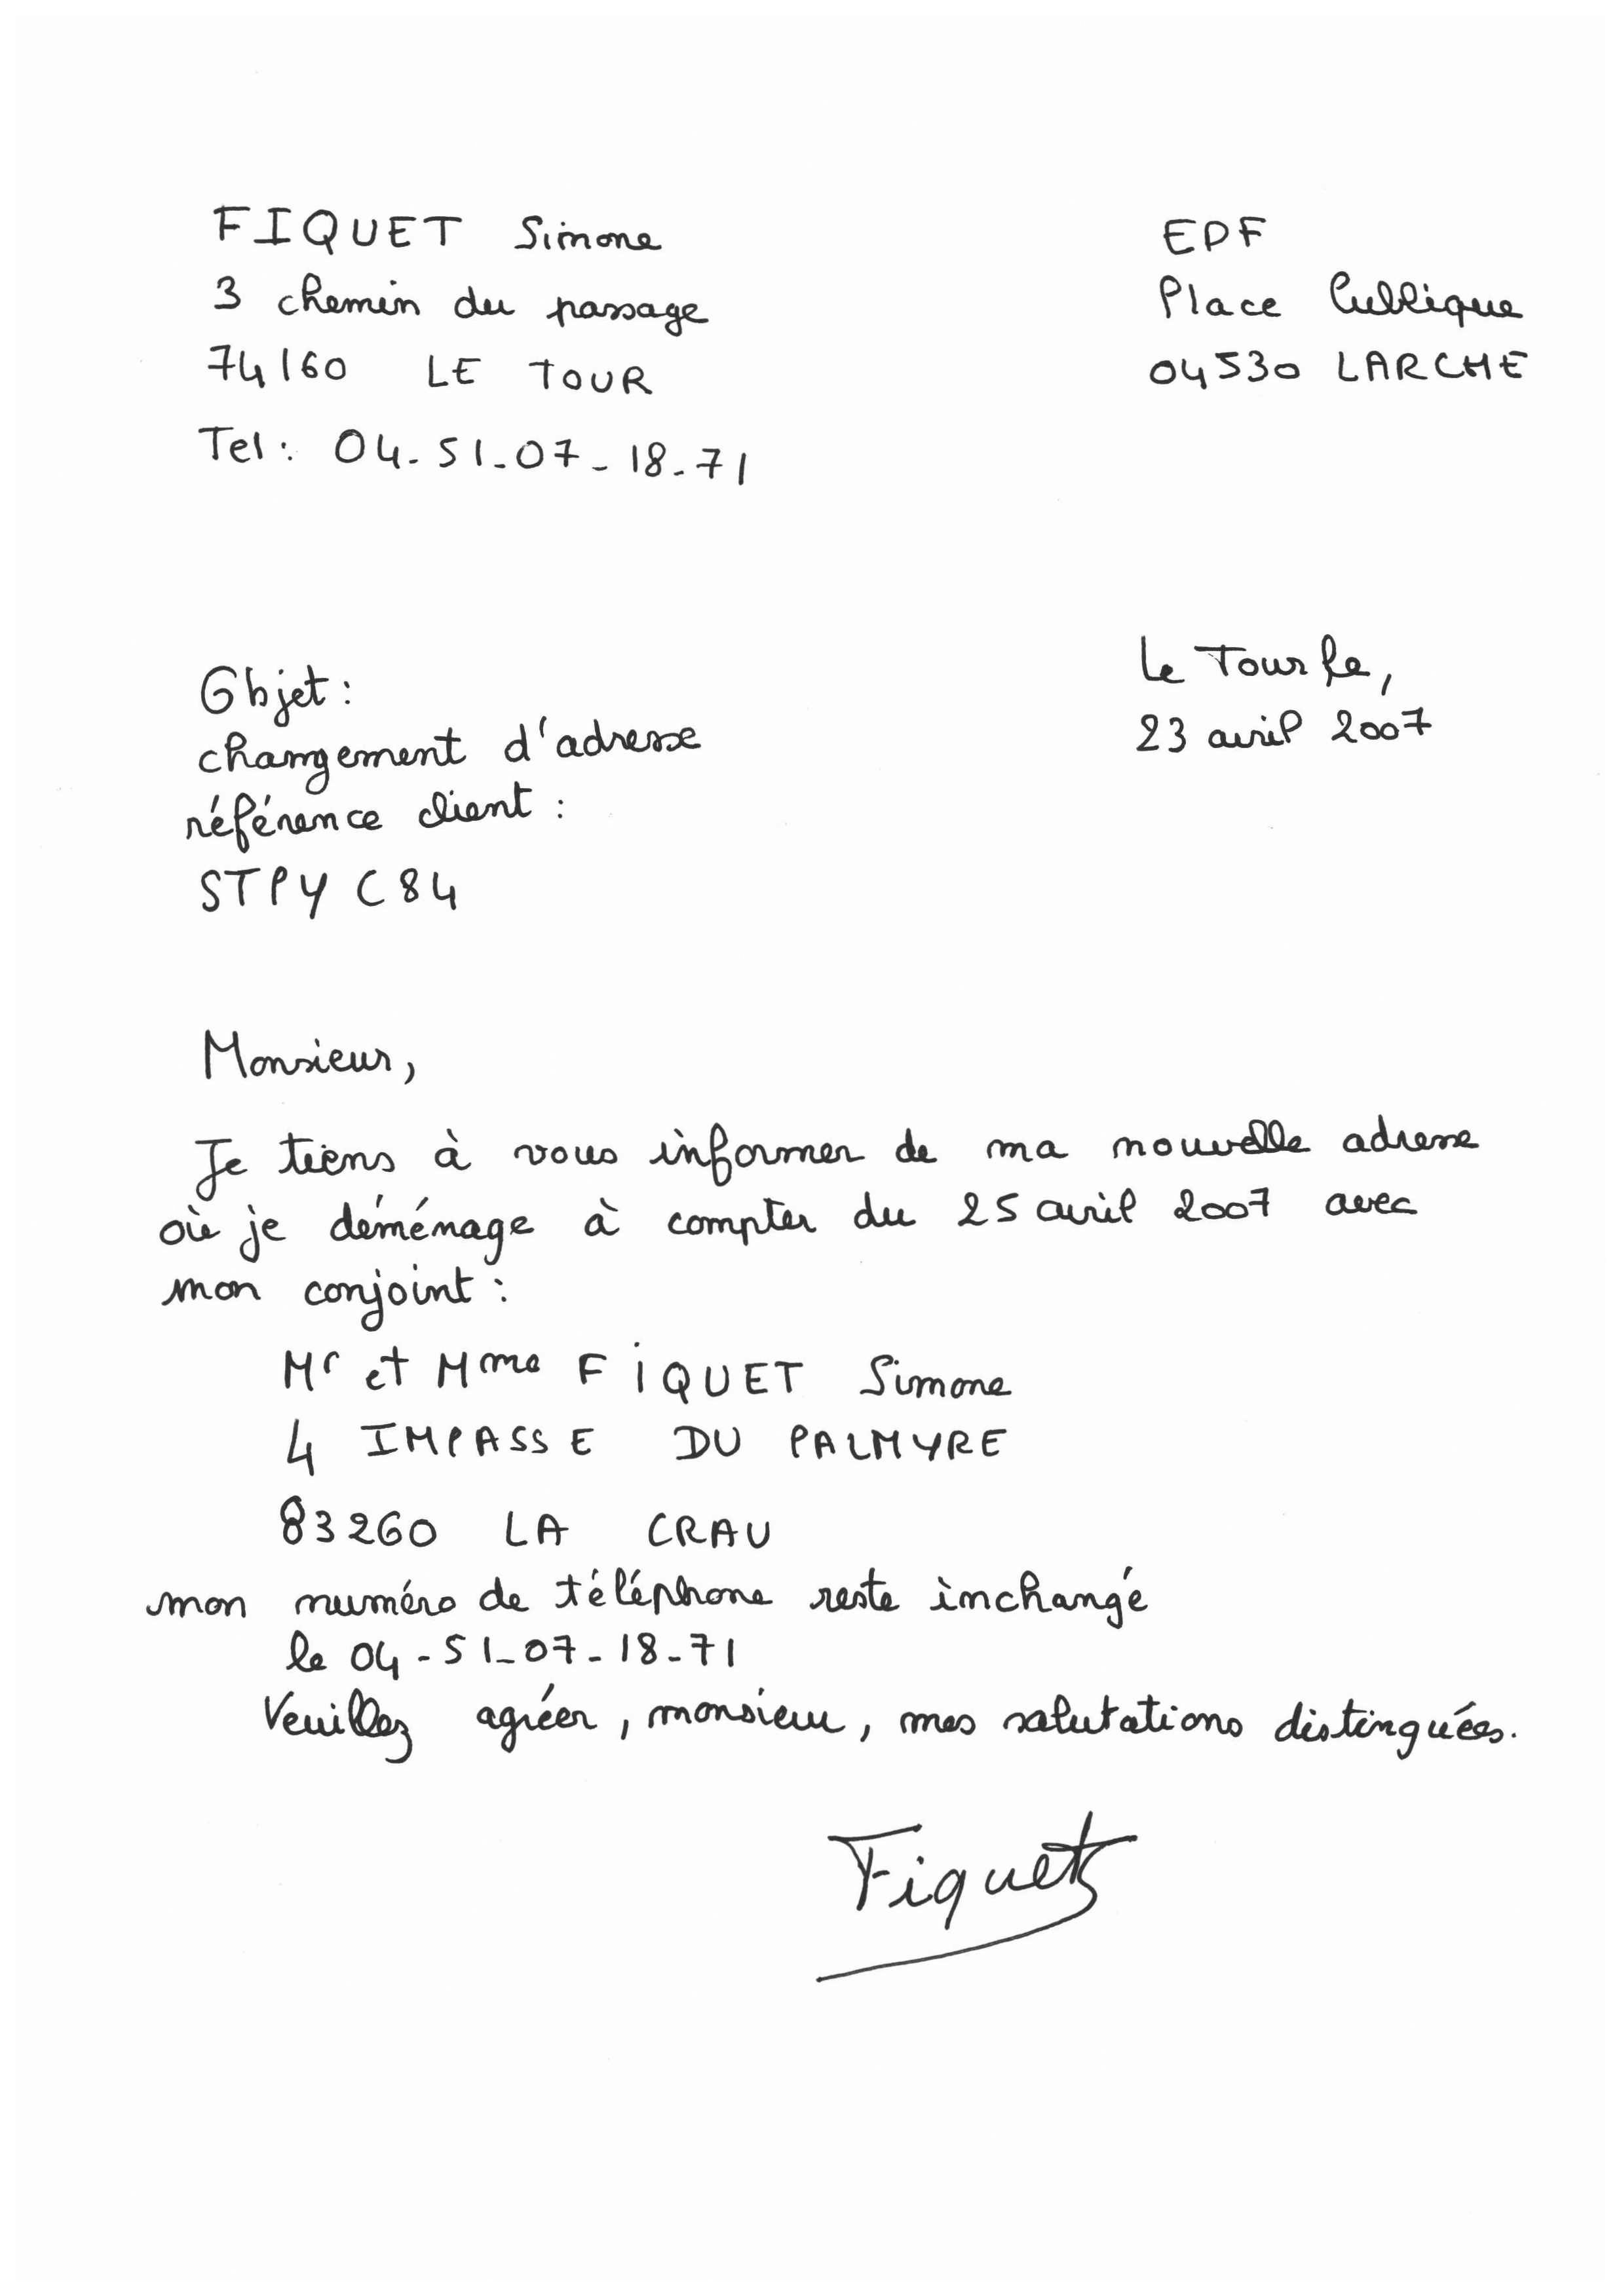 FIQUET Simone
3 chemin du passage
74160 LE TOUR
Tel : 04-51-07-18-71
EDF
Place Publique
04530 LARCHE
Objet :
changement d'adresse
référence client :
STPYC84
Le Tour le,
23 avril 2007
Monsieur,
Je tiens à vous informer de ma nouvelle adresse
où je déménage à compter du 25 avril 2007 avec
mon conjoint :
Mr et Mme FIQUET Simone
4 IMPASSE DU PALMYRE
83260 LA CRAU
mon numéro de téléphone reste inchangé
le 04-51-07-18-71
Veuillez agréer, monsieur, mes salutations distinguées.
Fiquet